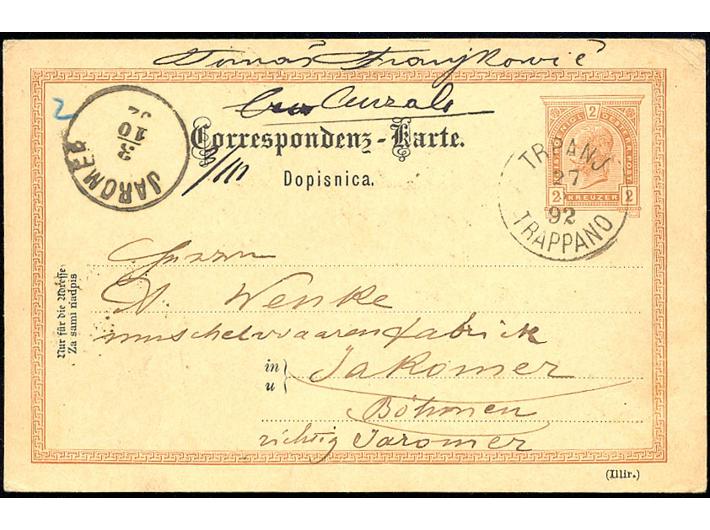 Tomaš Franjković
Curzola
Correspondenz-Karte.
Dopisnica.
2
JAROMĚŘ
3
10
92
2
2 KREUZER 2
TRPANJ
27
92
TRAPPANO
Herrn
A. Wenke
muschelwaarenfabrick
in
u
Jakomer
Böhmen
richtig Jaromer
Nur für die Adresse
Za sami nadpis
(Illir.)